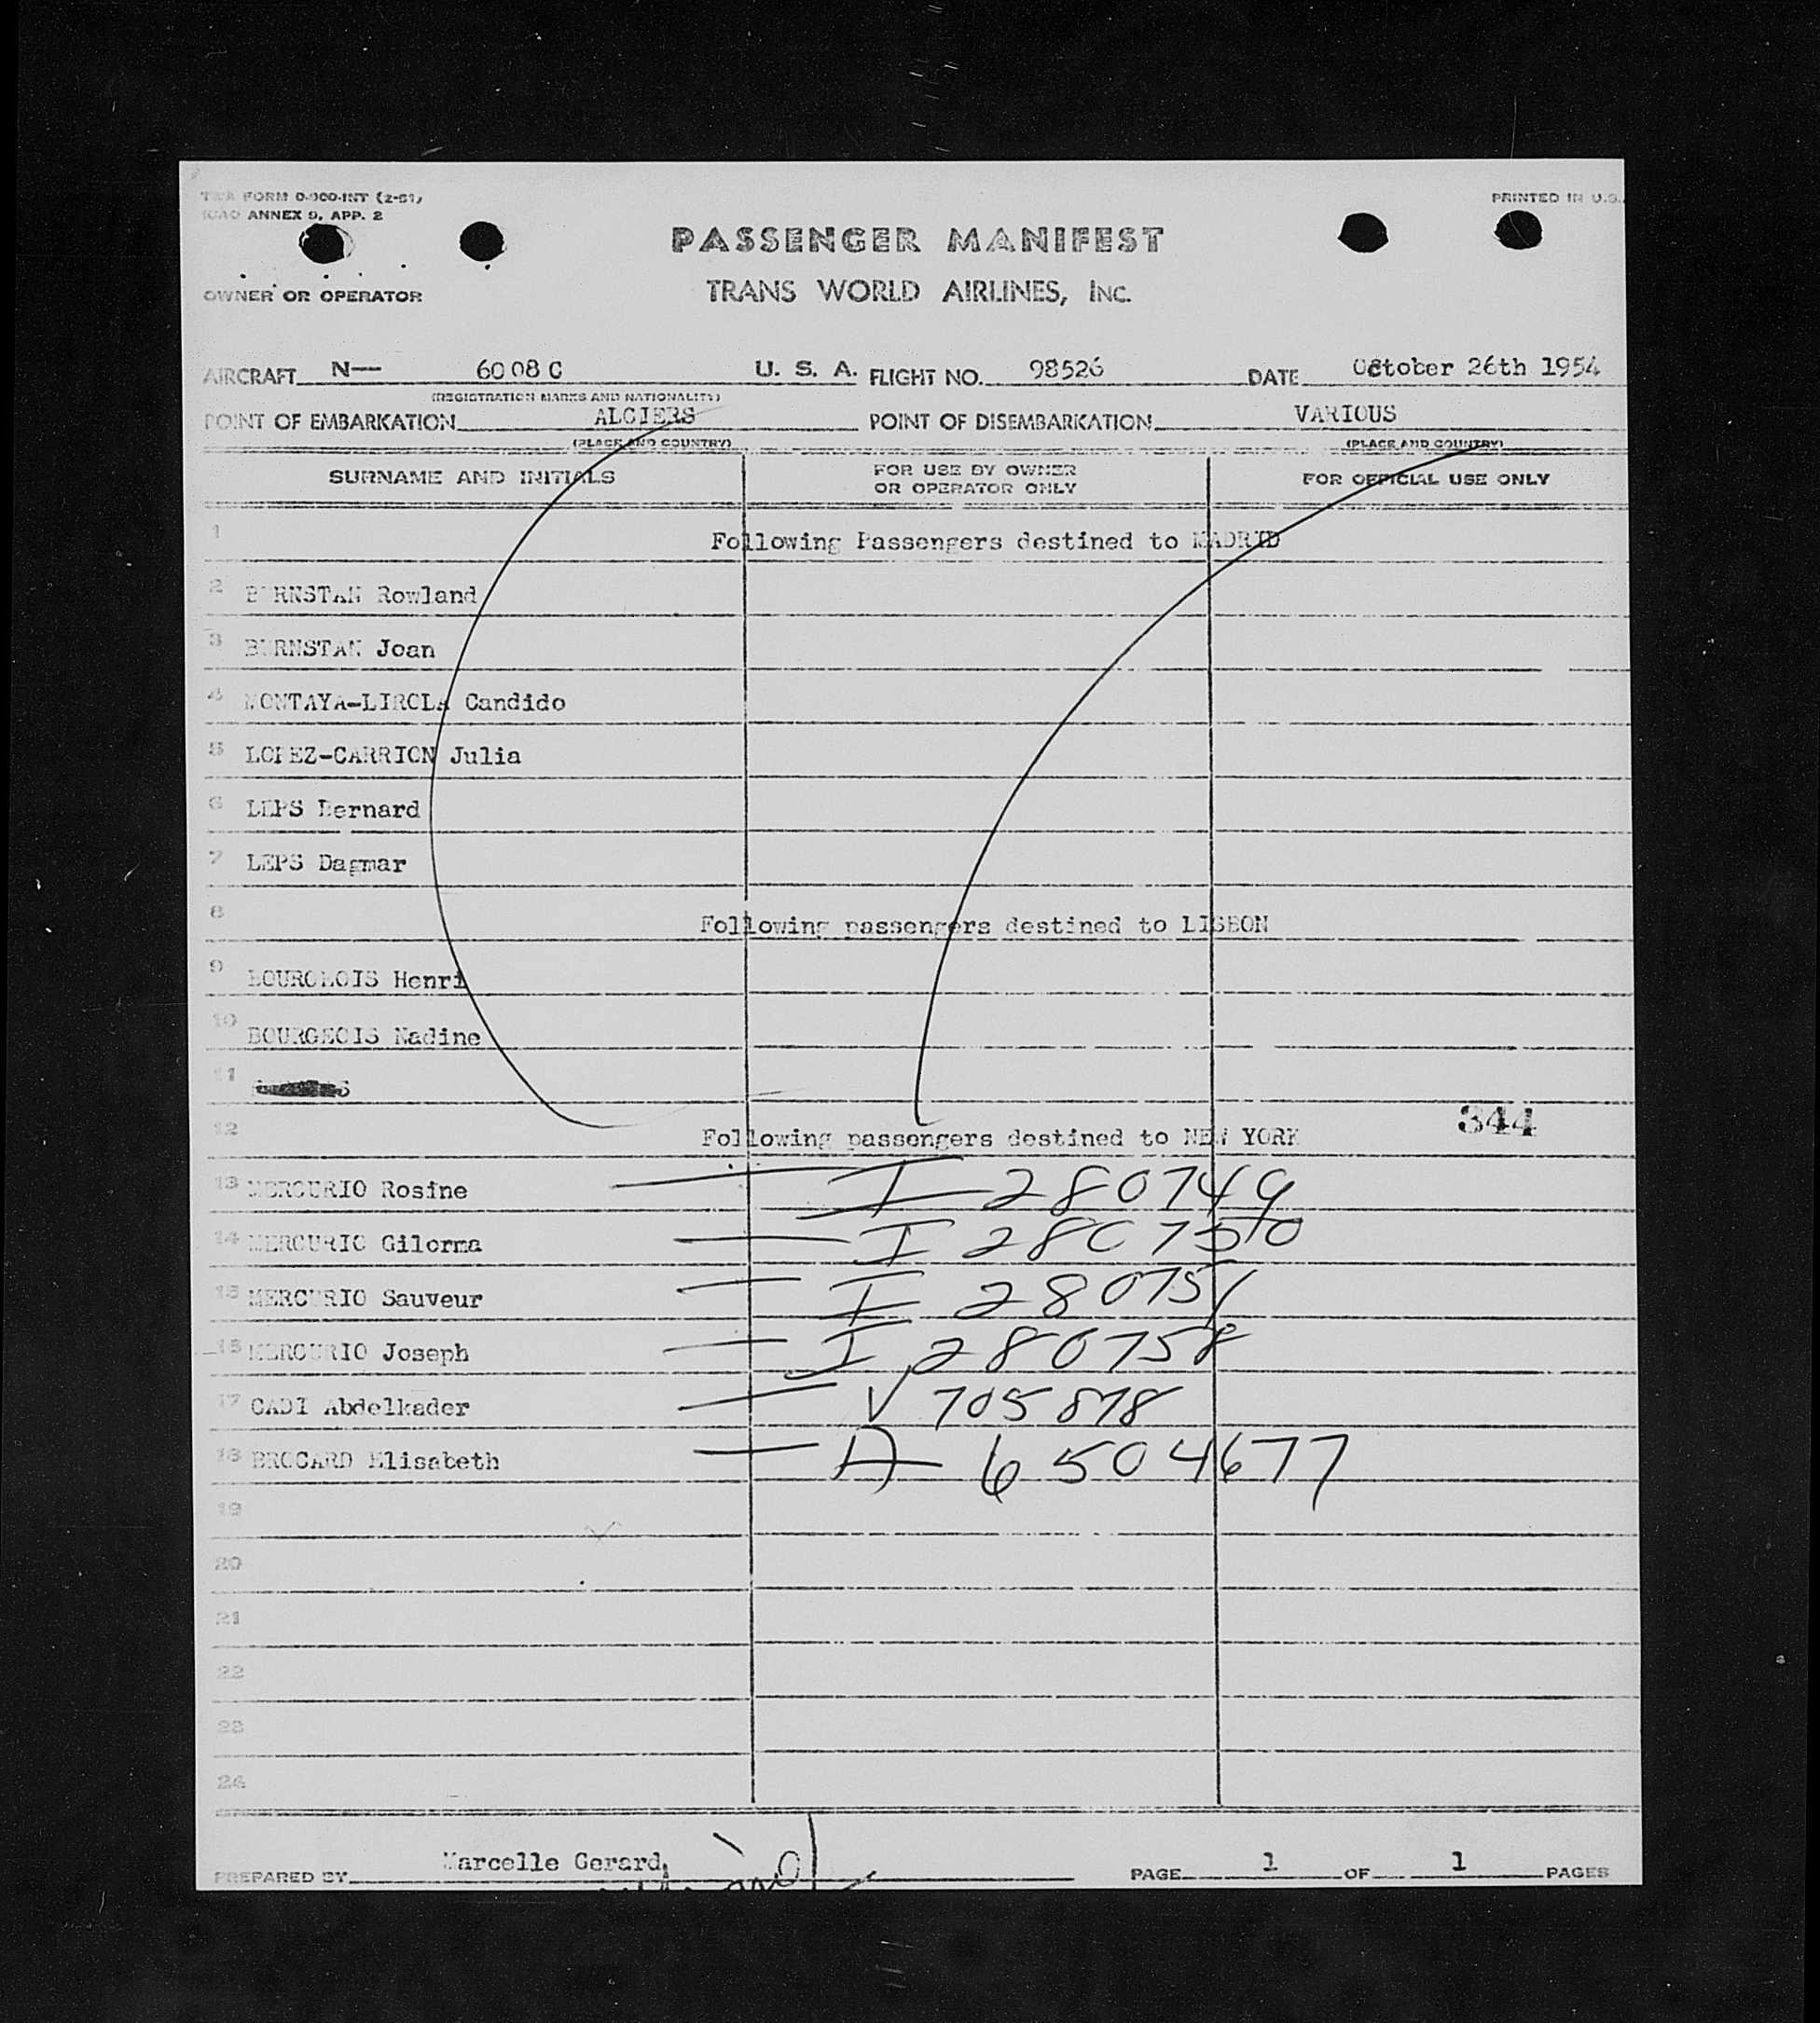 TWA FORM 0-900-INT (2-51)
ICAO ANNEX 9, APP. 2
PRINTED IN U.S.
PASSENGER MANIFEST
OWNER OR OPERATOR
TRANS WORLD AIRLINES, INC.
AIRCRAFT N— 6008 C U. S. A. FLIGHT NO. 98526 DATE October 26th 1954
(REGISTRATION MARKS AND NATIONALITY)
POINT OF EMBARKATION ALGIERS POINT OF DISEMBARKATION VARIOUS
(PLACE AND COUNTRY) (PLACE AND COUNTRY)
SURNAME AND INITIALS FOR USE BY OWNER OR OPERATOR ONLY FOR OFFICIAL USE ONLY
1 Following Passengers destined to MADRID
2 BURNSTAN Rowland
3 BURNSTAN Joan
4 MONTAYA-LIROLA Candido
5 LOPEZ-CARRION Julia
6 LEPS Bernard
7 LEPS Dagmar
8 Following passengers destined to LISBON
9 BOURGEOIS Henri
10 BOURGEOIS Nadine
11
344
12 Following passengers destined to NEW YORK
13 MERCURIO Rosine — I 280749
14 MERCURIO Gilorma — I 280750
15 MERCURIO Sauveur — I 280751
16 MERCURIO Joseph — I 280758
17 CADI Abdelkader — V 705878
18 BROCARD Elisabeth — A 6504677
19
20
21
22
23
24
PREPARED BY Marcelle Gerard, PAGE 1 OF 1 PAGES